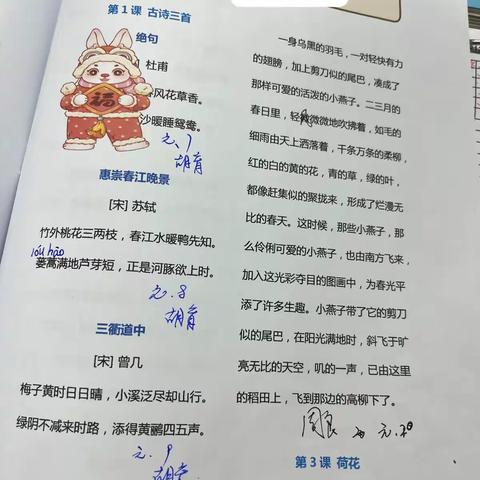 第1课 古诗三首
绝句
杜甫
春风花草香。
沙暖睡鸳鸯。
元、7
胡育
惠崇春江晚景
[宋] 苏轼
竹外桃花三两枝，春江水暖鸭先知。
lóu hāo
蒌蒿满地芦芽短，正是河豚欲上时。
元.8
胡育
三衢道中
[宋] 曾几
梅子黄时日日晴，小溪泛尽却山行。
绿阴不减来时路，添得黄鹂四五声。
元.9
胡育
一身乌黑的羽毛，一对轻快有力
的翅膀，加上剪刀似的尾巴，凑成了
那样可爱的活泼的小燕子。二三月的
春日里，轻微微地吹拂着，如毛的
细雨由天上洒落着，千条万条的柔柳，
红的白的黄的花，青的草，绿的叶，
都像赶集似的聚拢来，形成了烂漫无
比的春天。这时候，那些小燕子，那
么伶俐可爱的小燕子，也由南方飞来，
加入这光彩夺目的图画中，为春光平
添了许多生趣。小燕子带了它的剪刀
似的尾巴，在阳光满地时，斜飞于旷
亮无比的天空，叽的一声，已由这里
的稻田上，飞到那边的高柳下了。
第3课 荷花
福